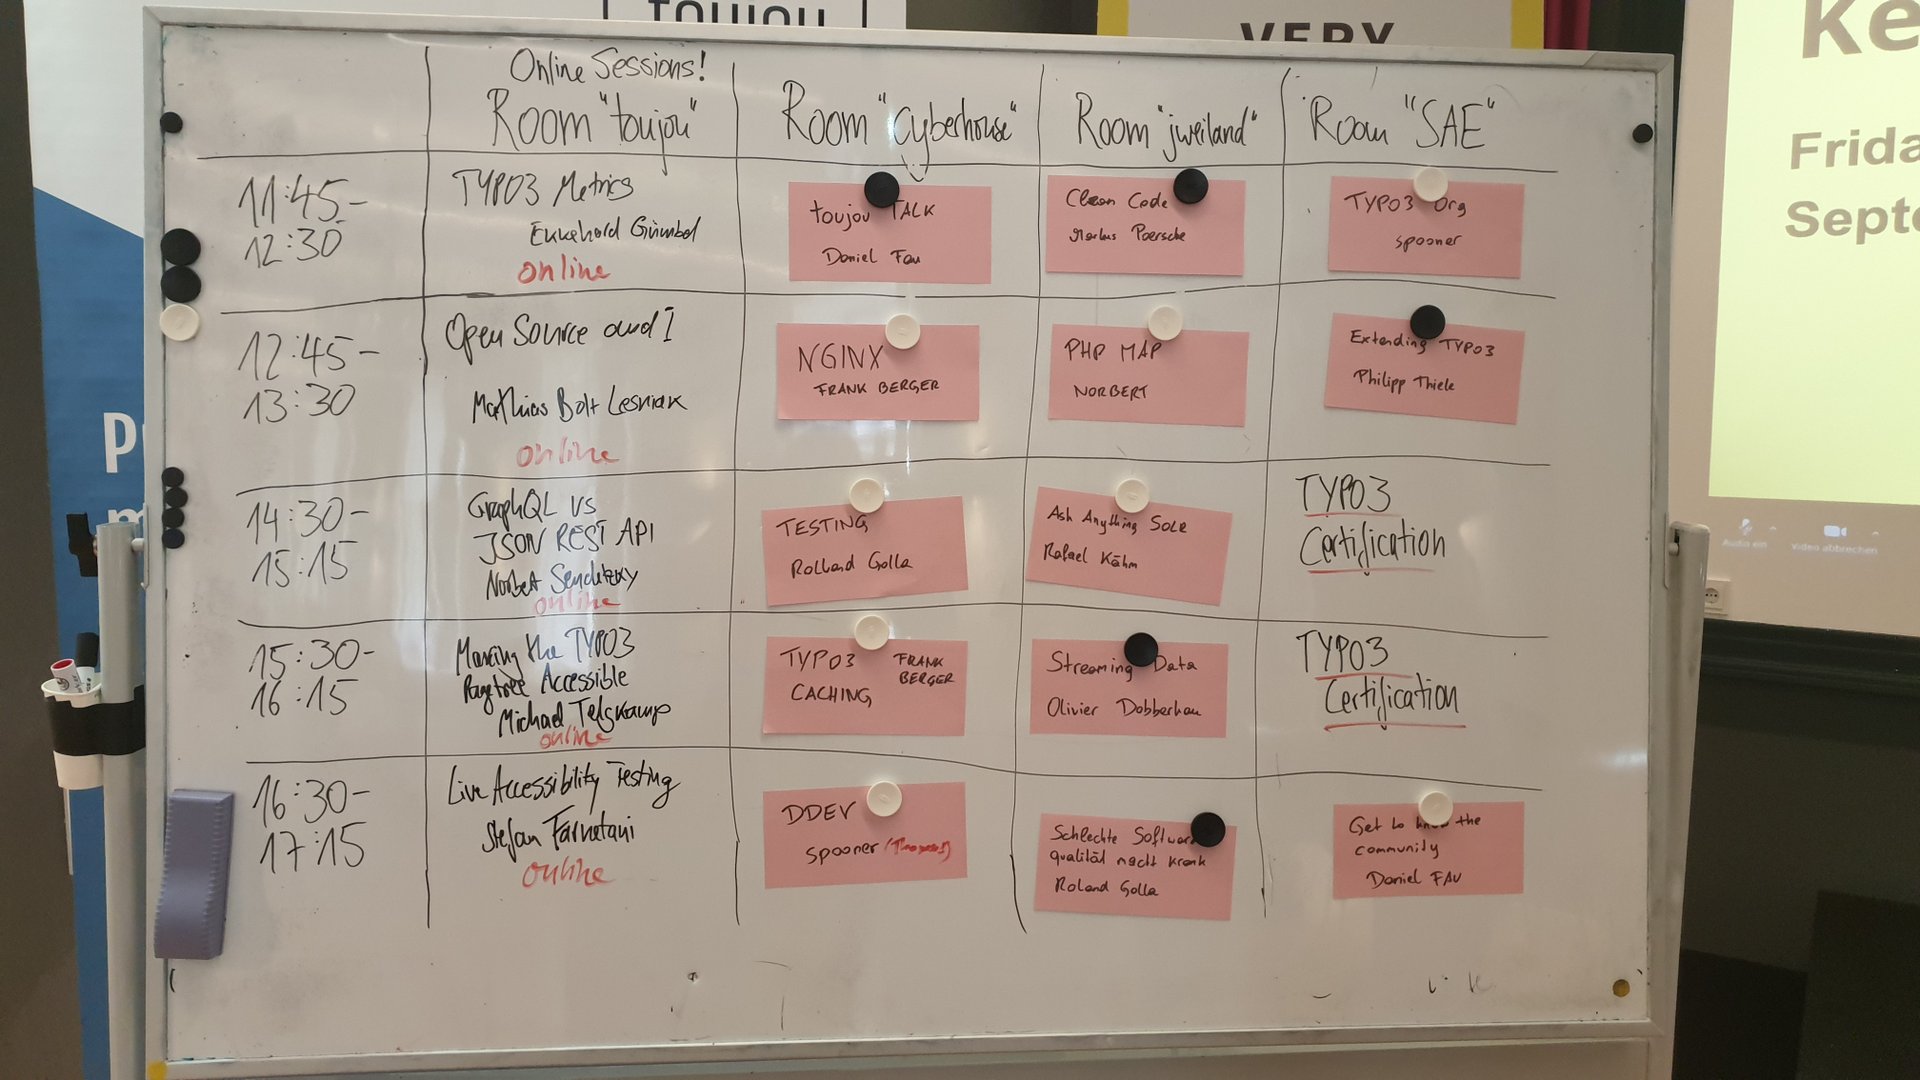 toujou
VERY
Ke
Frida
Septe
Audio ein
Video abbrechen
Online Sessions!
Room "toujou"
Room "Cyberhouse"
Room "jweiland"
Room "SAE"
11:45-
12:30
TYPO3 Metrics
Ekkehard Gümbel
online
toujou TALK
Daniel Fau
Clean Code
Markus Poerschke
TYPO3 Org
spooner
12:45-
13:30
Open Source and I
Mathias Bolt Lesniak
online
NGINX
FRANK BERGER
PHP MAP
NORBERT
Extending TYPO3
Philipp Thiele
14:30-
15:15
GraphQL vs
JSON REST API
Norbert Sendetzky
online
TESTING
Rolland Golla
Ask Anything SOLR
Rafael Kähm
TYPO3
Certification
15:30-
16:15
Making the TYPO3
Pagetree Accessible
Michael Telgkamp
online
TYPO3 FRANK
BERGER
CACHING
Streaming Data
Olivier Dobberkau
TYPO3
Certification
16:30-
17:15
Live Accessibility Testing
Stefan Farnetani
online
DDEV
spooner (Thomas)
Schlechte Software
qualität macht krank
Roland Golla
Get to know the
community
Daniel FAU